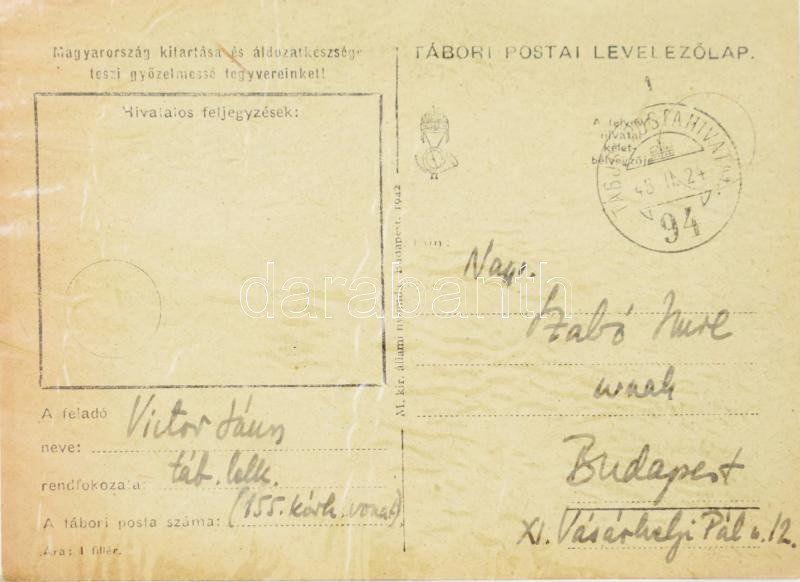 Magyarország kitartása és áldozatkészsége
teszi győzelmessé fegyvereinket!
Hivatalos feljegyzések:
A feladó
neve: Victor János
rendfokozata: táb. lelk.
A tábori posta száma: (155. kórh. vonat)
Ára: 1 fillér.
M. kir. állami nyomda, Budapest. 1942
TÁBORI POSTAI LEVELEZŐLAP.
A
hivatal
kelet-
bélyegzője
TÁBORI POSTAHIVATAL
43 IX 24
94
Nagy.
Szabó Imre
urnak
Budapest
XI. Vásárhelyi Pál u. 12.
darabanth